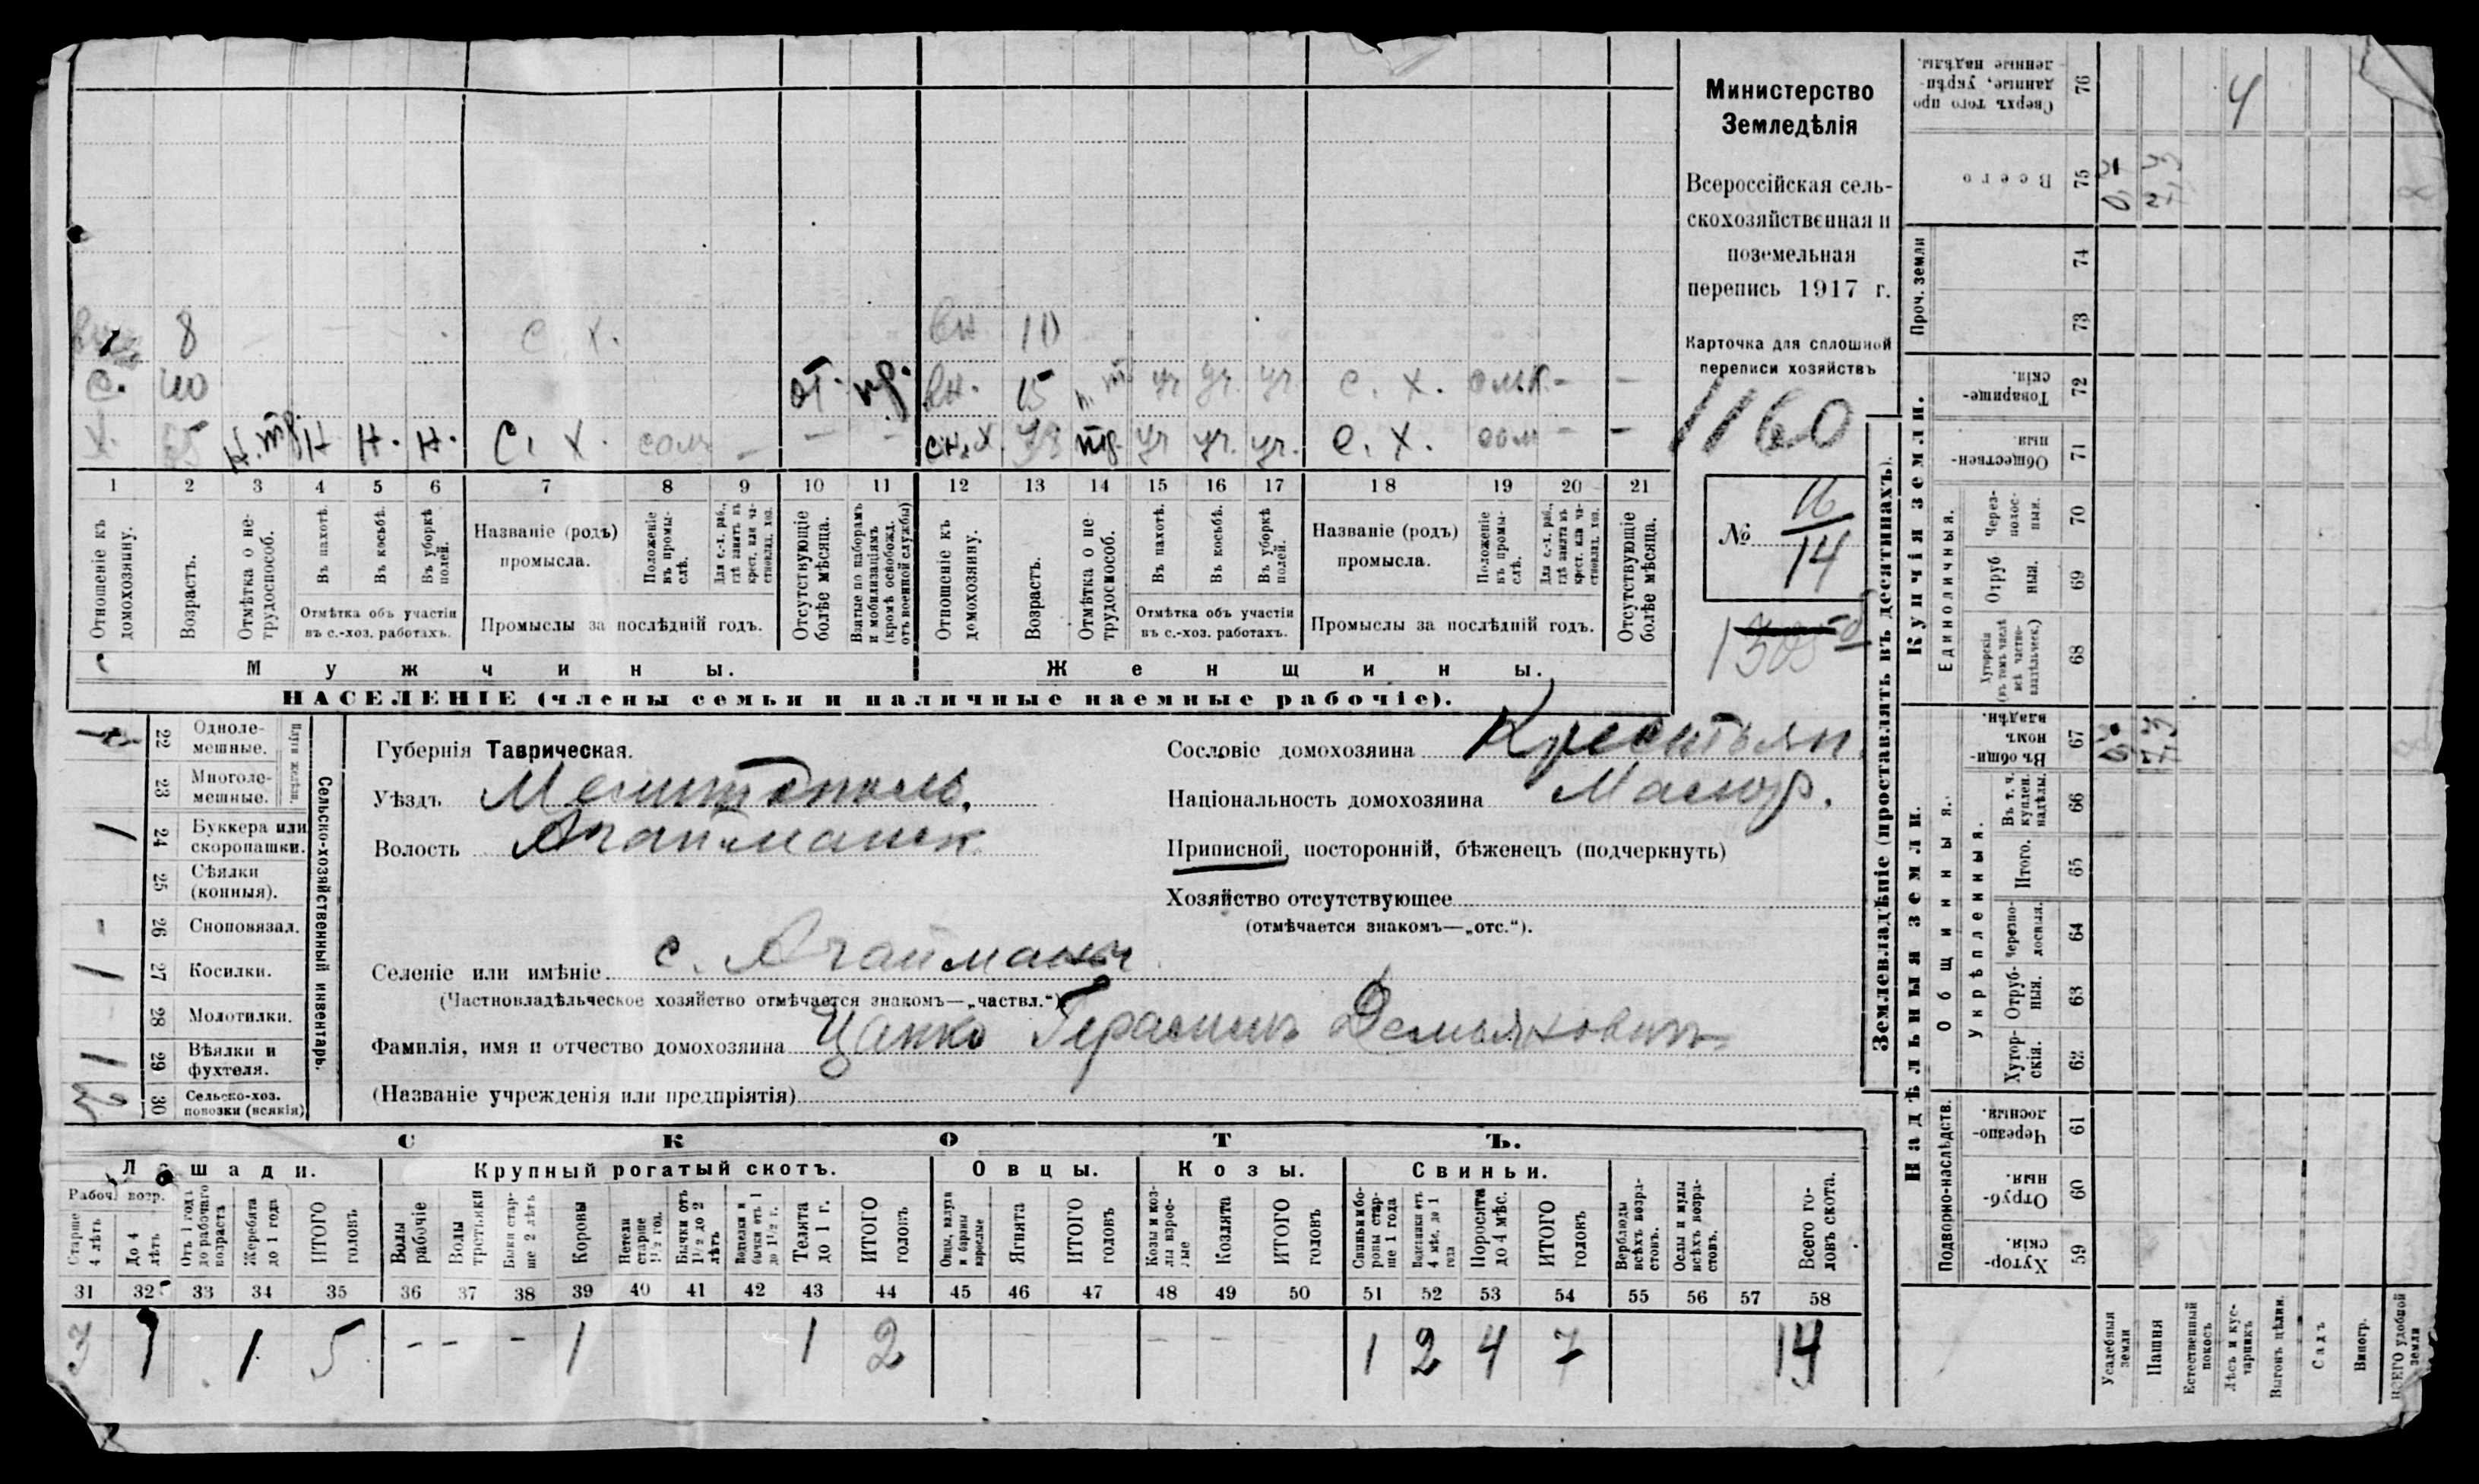 Министерство
Земледѣлія
Всероссійская сель-
скохозяйственная и
поземельная
перепись 1917 г.
Карточка для сплошной
переписи хозяйствъ
1160
№ 16/14
8 с. х. вн 10
с. 40 от. пр. вн. 15 н. т. уч уч. уч. с. х. – –
х. 65 н. тр. н н. н. с. х. сам – – – сн. х. тр. уч уч. уч. с. х. сам – –
1 2 3 4 5 6 7 8 9 10 11 12 13 14 15 16 17 18 19 20 21
Отношеніе къ домохозяину.
Возрастъ.
Отмѣтка о не-трудоспособ.
Въ пахотѣ.
Въ косьбѣ.
Въ уборкѣ полей.
Отмѣтка объ участіи въ с.-хоз. работахъ.
Названіе (родъ) промысла.
Положеніе въ промы-слѣ.
Для с.-х. раб., гдѣ занятъ въ крест. или ча-стновлад. хоз.
Промыслы за послѣдній годъ.
Отсутствующіе болѣе мѣсяца.
Взятые по наборамъ и мобилизаціямъ (кромѣ освобожд. отъ военной службы)
Отношеніе къ домохозяину.
Возрастъ.
Отмѣтка о не-трудоспособ.
Въ пахотѣ.
Въ косьбѣ.
Въ уборкѣ полей.
Отмѣтка объ участіи въ с.-хоз. работахъ.
Названіе (родъ) промысла.
Положеніе въ промы-слѣ.
Для с.-х. раб., гдѣ занята въ крест. или ча-стновлад. хоз.
Промыслы за послѣдній годъ.
Отсутствующіе болѣе мѣсяца.
Мужчины. Женщины.
НАСЕЛЕНІЕ (члены семьи и наличные наемные рабочіе).
Сельско-хозяйственный инвентарь.
Плуги желѣзн.
22 Одноле-мешные.
23 Многоле-мешные.
1 24 Буккера или скоропашки.
25 Сѣялки (конныя).
– 26 Сноповязал.
1 27 Косилки.
28 Молотилки.
1 29 Вѣялки и фухтеля.
30 Сельско-хоз. повозки (всякія)
Губернія Таврическая.
Уѣздъ Мелитополь.
Волость Агайманск
Селеніе или имѣніе с. Агайманы
(Частновладѣльческое хозяйство отмѣчается знакомъ—„частвл.“)
Фамилія, имя и отчество домохозяина Цапко Герасимъ Демьяновичъ
(Названіе учрежденія или предпріятія)
Сословіе домохозяина Крестьян.
Національность домохозяина Малор.
Приписной, посторонній, бѣженецъ (подчеркнуть)
Хозяйство отсутствующее
(отмѣчается знакомъ—„отс.“).
СКОТЪ.
Лошади. Крупный рогатый скотъ. Овцы. Козы. Свиньи.
Рабоч. возр.
Старше 4 лѣтъ
До 4 лѣтъ
Отъ 1 года до рабочаго возраста
Жеребята до 1 года
ИТОГО головъ
Волы рабочіе
Волы третьяки
Быки стар-ше 2 лѣтъ
Коровы
Нетели старше 1½ год.
Бычки отъ 1½ до 2 лѣтъ
Телки и бычки отъ 1 до 1½ г.
Телята до 1 г.
ИТОГО головъ
Овцы, валухи и бараны взрослые
Ягнята
ИТОГО головъ
Козы и коз-лы взрос-лые
Козлята
ИТОГО головъ
Свиньи бо-ровы стар-ше 1 года
Подсвинки отъ 4 мѣс. до 1 года
Поросята до 4 мѣс.
ИТОГО головъ
Верблюды всѣхъ возра-стовъ.
Ослы и мулы всѣхъ возра-стовъ.
Всего го-ловъ скота.
31 32 33 34 35 36 37 38 39 40 41 42 43 44 45 46 47 48 49 50 51 52 53 54 55 56 57 58
3 1 1 5 – – – 1 1 2 – – – – 1 2 4 7 14
Землевладѣніе (проставлять въ десятинахъ).
Надѣльныя земли. Купчія земли. Проч. земли
Подворно-наслѣдств.
Общинныя.
Укрѣпленныя.
Единоличныя.
59 Хутор-скія.
60 Отруб-ныя.
61 Черезпо-лосныя.
62 Хутор-скія.
63 Отруб-ныя.
64 Черезпо-лосныя.
65 Итого.
66 Въ т. ч. куплен. надѣлы.
67 Въ общин-номъ владѣн.
68 Хуторскія (въ томъ числѣ всѣ частно-владѣльческ.)
69 Отруб ныя.
70 Через-полос-ныя.
71 Обществен-ныя.
72 Товарище-скія.
73
74
75 Всего
76 Сверхъ того про данные, укрѣп-ленные надѣлы.
4
Усадебныя земли
Пашня
Естественный покосъ
Лѣсъ и кус-тарникъ
Выгонъ цѣлин.
Садъ
Виногр.
ВСЕГО удобной земли